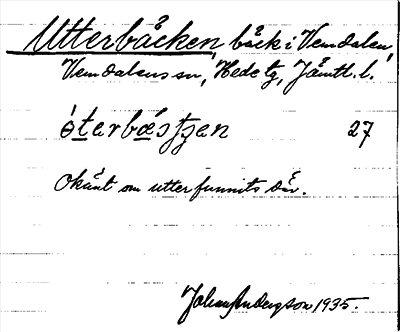 Utterbäcken, bäck i Vemdalen,
Vemdalens sn, Hede tg, Jämtl. l.
òterbæstzen 27
Okänt om utter funnits där.
Johan Andersson 1935.